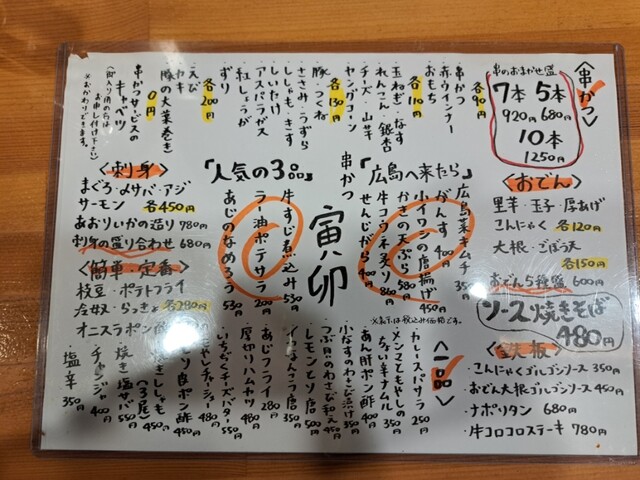 〈串かつ〉
串のおまかせ盛
7本 5本
920円 680円
10本
1250円
串かつ
赤ウインナー
おもち
各90円
玉ねぎ・なす
れんこん・銀杏
チーズ・山芋
各110円
ヤングコーン
豚・つくね
各130円
ささみ・うずら
ししゃも・きす
しいたけ
アスパラガス
紅しょうが
ずり
各200円
えび
カキ
豚の大葉巻き
0円
串かつサービスの
キャベツ
※おかわりできます。
〈おでん〉
里芋・玉子・厚あげ
こんにゃく 各120円
大根・ごぼう天
各150円
おでん5種盛 600円
ソース焼きそば
480円
〈鉄板〉
・こんにゃくゴルゴンソース 350円
・おでん大根ゴルゴンソース 450円
・ナポリタン 680円
・牛コロコロステーキ 780円
「広島へ来たら」
広島菜キムチ 350円
がんす 400円
小イワシの唐揚げ 450円
かきの天ぷら 580円
牛コウネ炙り 860円
せんじがら 400円
串かつ
寅卯
「人気の3品」
牛すじ煮込み 530円
ラー油ポテサラ 200円
あじのなめろう 530円
〈刺身〉
まぐろ・〆サバ・アジ
サーモン 各450円
あおりいかの造り 780円
刺身の盛り合わせ 680円
〈簡単・定番〉
枝豆・ポテトフライ
冷奴・らっきょ 各280円
オニスラポン酢
〈一品〉
カレースパサラ 250円
メンマともやしの
ちょい辛ナムル 350円
あん肝ポン酢 400円
小なすのわさび漬け 350円
つぶ貝のわさび和え 450円
レモンとソロ 500円
いわなんこつ唐 350円
あじフライ 280円
厚切りハムカツ 480円
いちぢくチーズバター 550円
もやしチャーシュー 480円
焼きししゃも(3尾) 450円
焼き塩サバ 550円
チャンジャ 400円
塩辛 350円